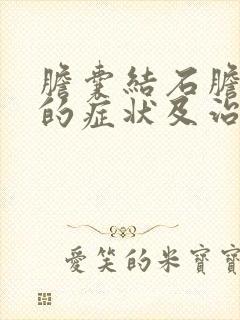 膽囊結石膽
的症狀及治
愛笑的米寶寶